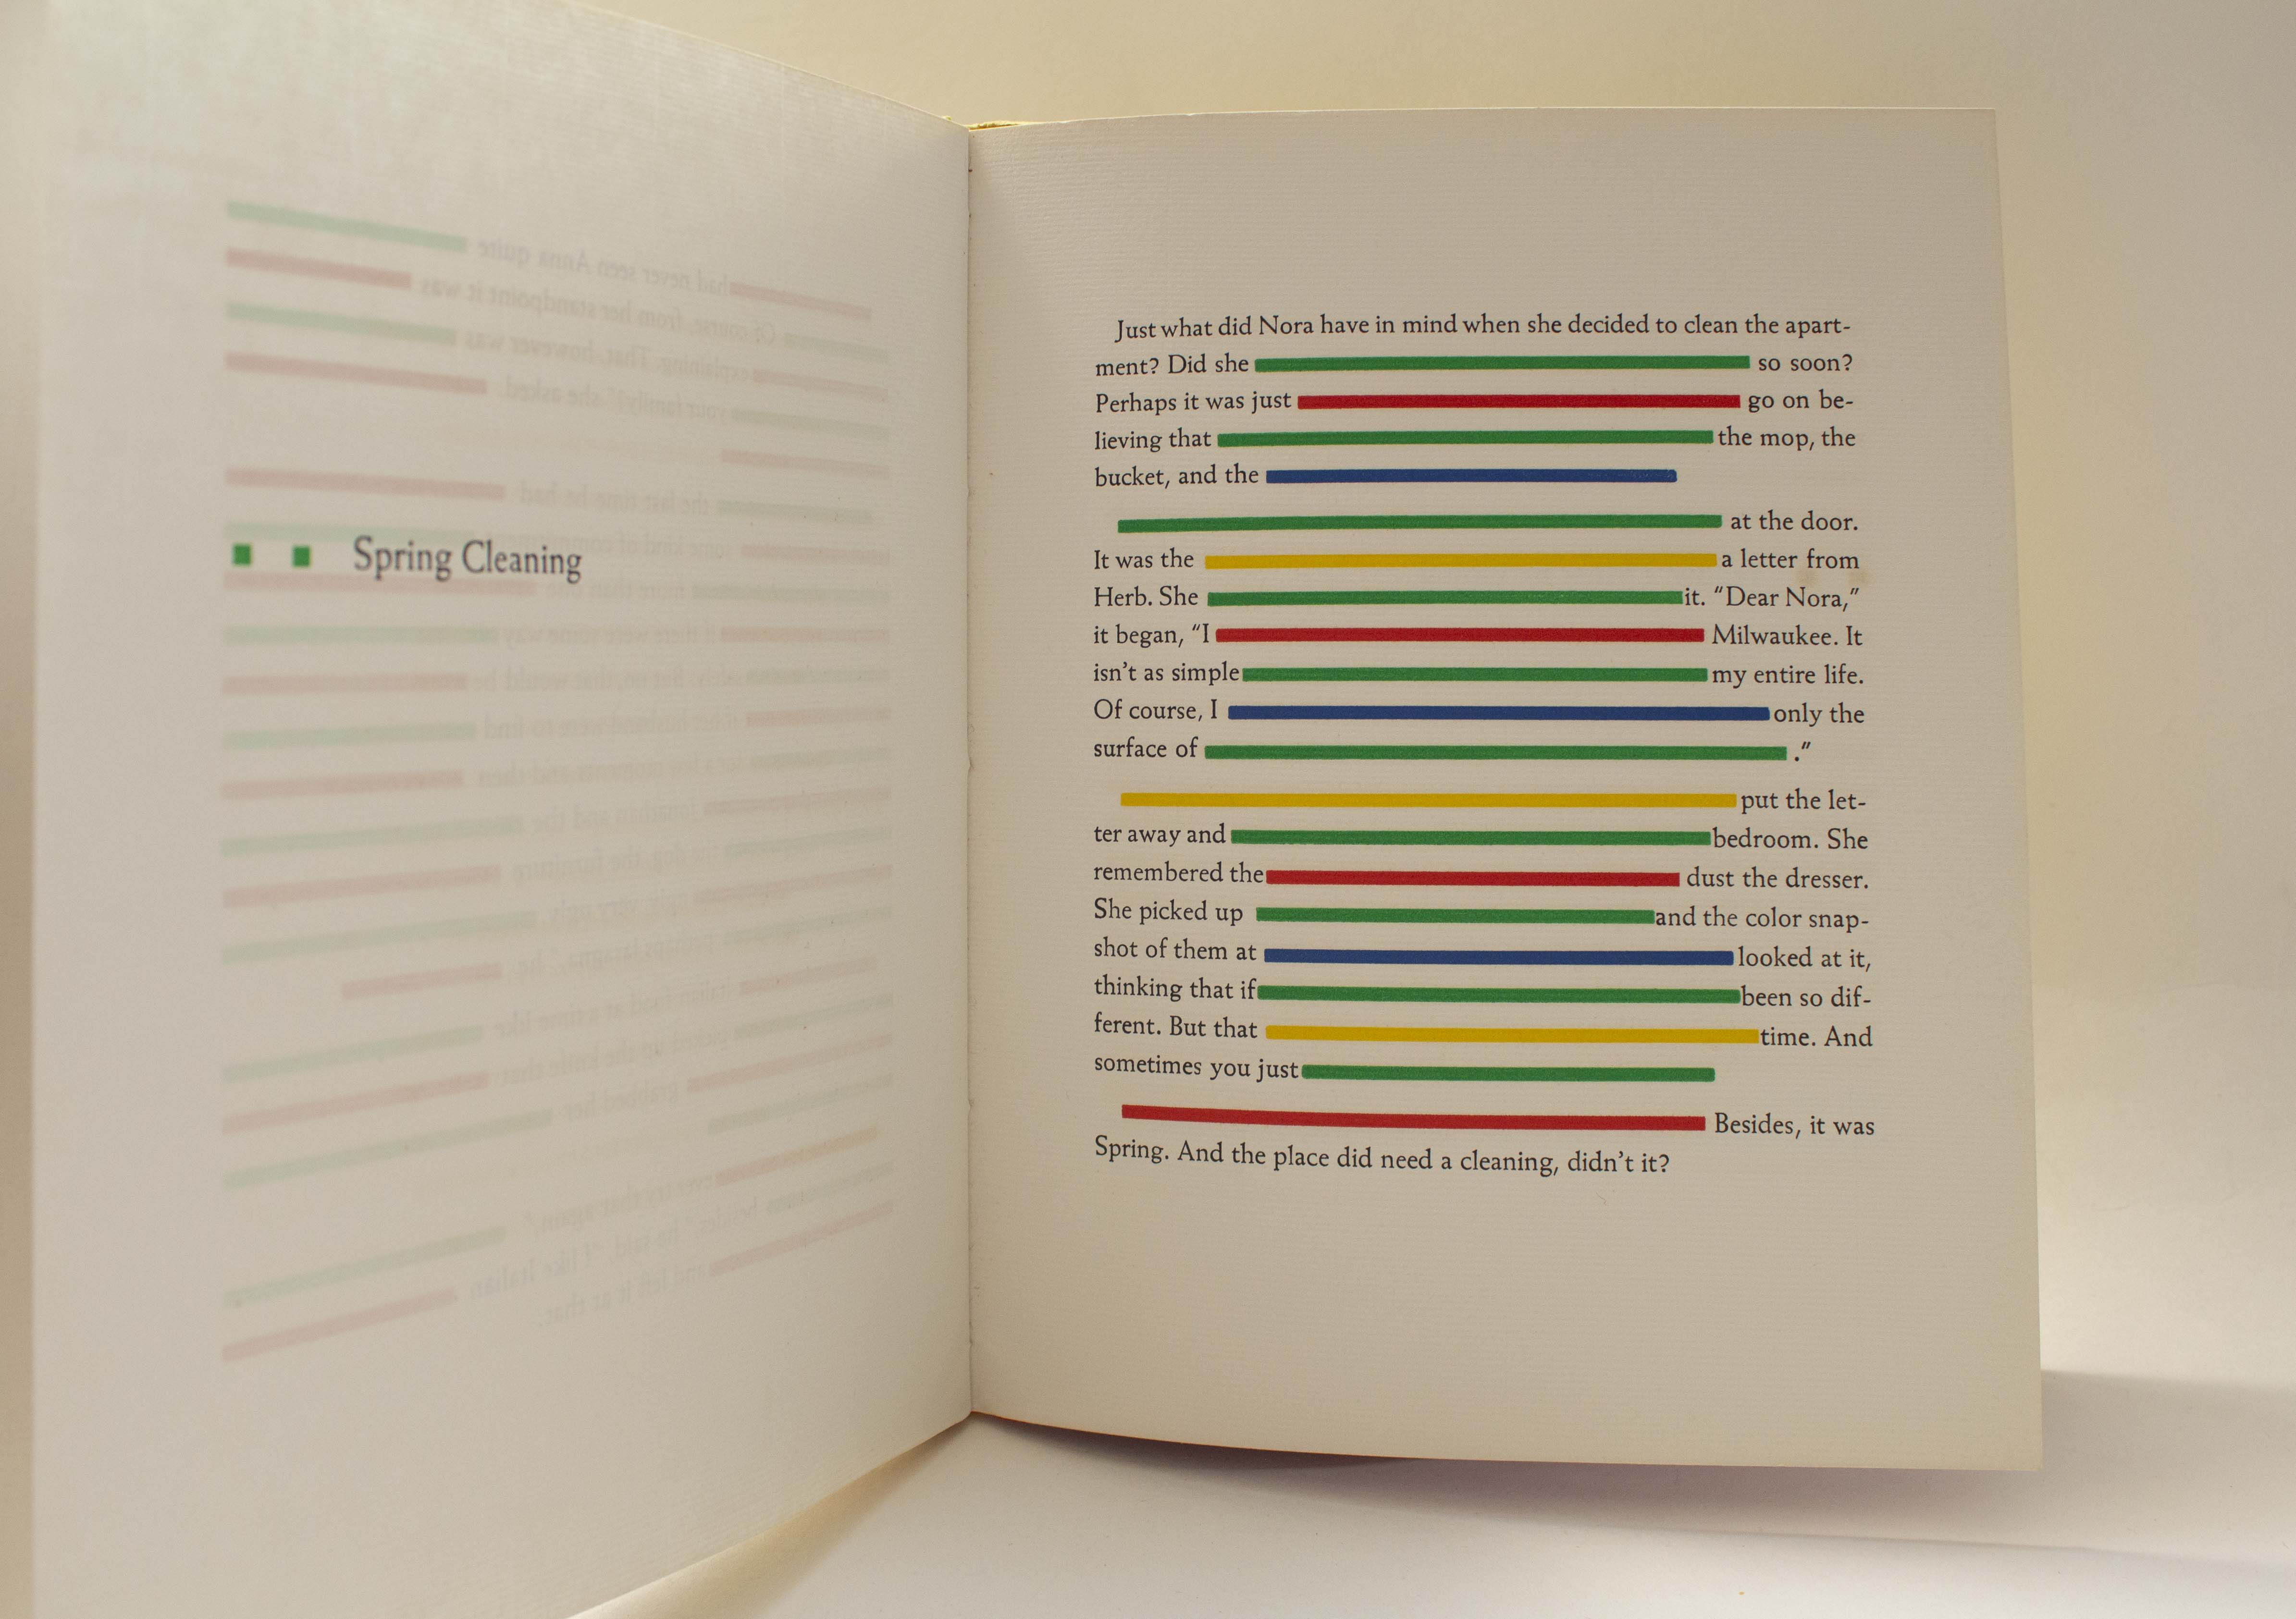 Spring Cleaning
Just what did Nora have in mind when she decided to clean the apart-
ment? Did she so soon?
Perhaps it was just go on be-
lieving that the mop, the
bucket, and the
at the door.
It was the a letter from
Herb. She it. “Dear Nora,”
it began, “I Milwaukee. It
isn’t as simple my entire life.
Of course, I only the
surface of .”
put the let-
ter away and bedroom. She
remembered the dust the dresser.
She picked up and the color snap-
shot of them at looked at it,
thinking that if been so dif-
ferent. But that time. And
sometimes you just
Besides, it was
Spring. And the place did need a cleaning, didn’t it?